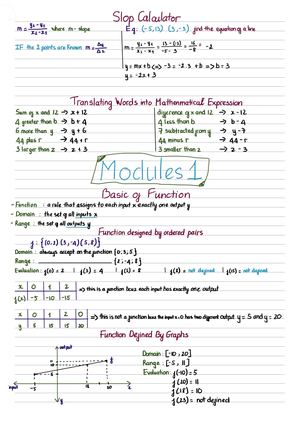 Slop Calculator
m = y₂-y₁/x₂-x₁ where m - slope E.g: (-5,13) (3,-3) find the equation of a line
IF the 2 points are known m = Δy/Δx
m = y₂-y₁/x₂-x₁ = 13-(-3)/-5-3 = 16/-8 = -2
y = mx+b ⇔ -3 = -2.3 + b ⇔ b = 3
y = -2x+3
Translating Words into Mathematical Expression
Sum of x and 12 → x+12 difference of x and 12 → x-12
4 greater than b → b+4 4 less than b → b-4
6 more than y → y+6 7 subtracted from y → y-7
44 plus r → 44+r 44 minus r → 44-r
3 larger than z → z+3 3 smaller than z → z-3
Modules 1
Basic of Function
- Function : a rule that assigns to each input x exactly one output y
- Domain : the set of all inputs x
- Range : the set of all outputs y
Function defined by ordered pairs
f : {(0,2) (3,-4) (5,8)}
Domain : always accept on the function {0;3;5}
Range : {2;-4;8}
Evaluation : f(0) = 2 | f(3) = 4 | f(5) = 8 | f(8) = not defined | f(10) = not defined
x 0 1 2 ⇒ this is a function bcoz each input has exactly one output
f(x) -5 -10 -15
x 0 1 2 0 ⇒ this is not a function bcoz the input x = 0 has two different output y = 5 and y = 20
y 5 15 15 20
Function Defined By Graphs
output
Domain : [-10, 20]
Range : [-5, 11]
Evaluation : f(-10) = 5
f(20) = 11
f(18) = 10
f(23) = not defined
input
x
y